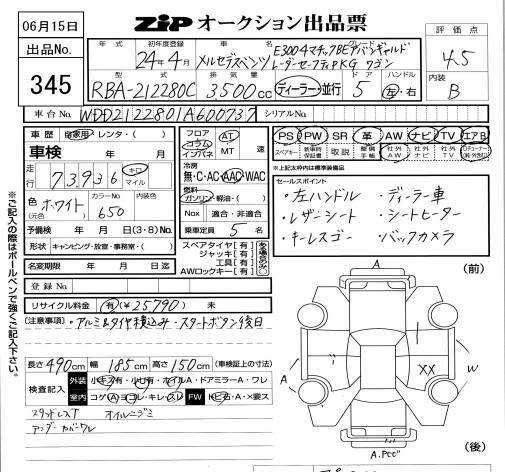 06月15日
ZiP オークション出品票
出品No. 345
評価点 4.5
内装 B
年式 初年度登録 車名 グレード
24年4月 メルセデスベンツ E300 4マチックBEアバンギャルド
レーダーセーフティPKG ワゴン
型式 排気量 ドア ハンドル
RBA-212280C 3,500cc ディーラー・並行 5 左・右
車台No. WDD2122801A600737 シリアルNo.
車歴 自家用・レンタ・( )
車検 年 月
走行 73,936 キロ マイル
色 ホワイト (元色) カラーNo 650 内装色
予備検 年 月 日(3・8)No.
形状 キャンピング・放宣・事務室・( )
名変期限 年 月 日迄
登録No
リサイクル料金 有(¥25790) 未
フロア コラム インパネ AT MT 速
冷房 無・C・AC AAC・WAC
燃料 ガソリン・軽油・( )
Nox 適合・非適合
乗車定員 5 名
スペアタイヤ[有]
ジャッキ[有]
工具[有]
AWロックキー[有]
PS PW SR 革 AW ナビ TV エアB
スペアキー 新車時保証書 取説 整備手帳 社外AW 社外ナビ 社外TV
※上記太枠内は標準装備品
セールスポイント
・左ハンドル ・ディーラー車
・レザーシート ・シートヒーター
・キーレスゴー ・バックカメラ
[注意事項] ・アルミ&タイヤ積込み・スタートボタン後日
長さ 490cm 幅 185cm 高さ 150cm (車検証上の寸法)
検査記入 外装 小キズ有・小凹有・ホイルA・ドアミラーA・ワレ
室内 コゲA・ヨゴレ・キレ・スレ FW トビ石・A・X要ス
スタッドレスT オイルニジミ
アンダーカバーワレ
※ご記入の際はボールペンで強くご記入下さい。
(前)
A
A
XX
W
A.PCC"
(後)